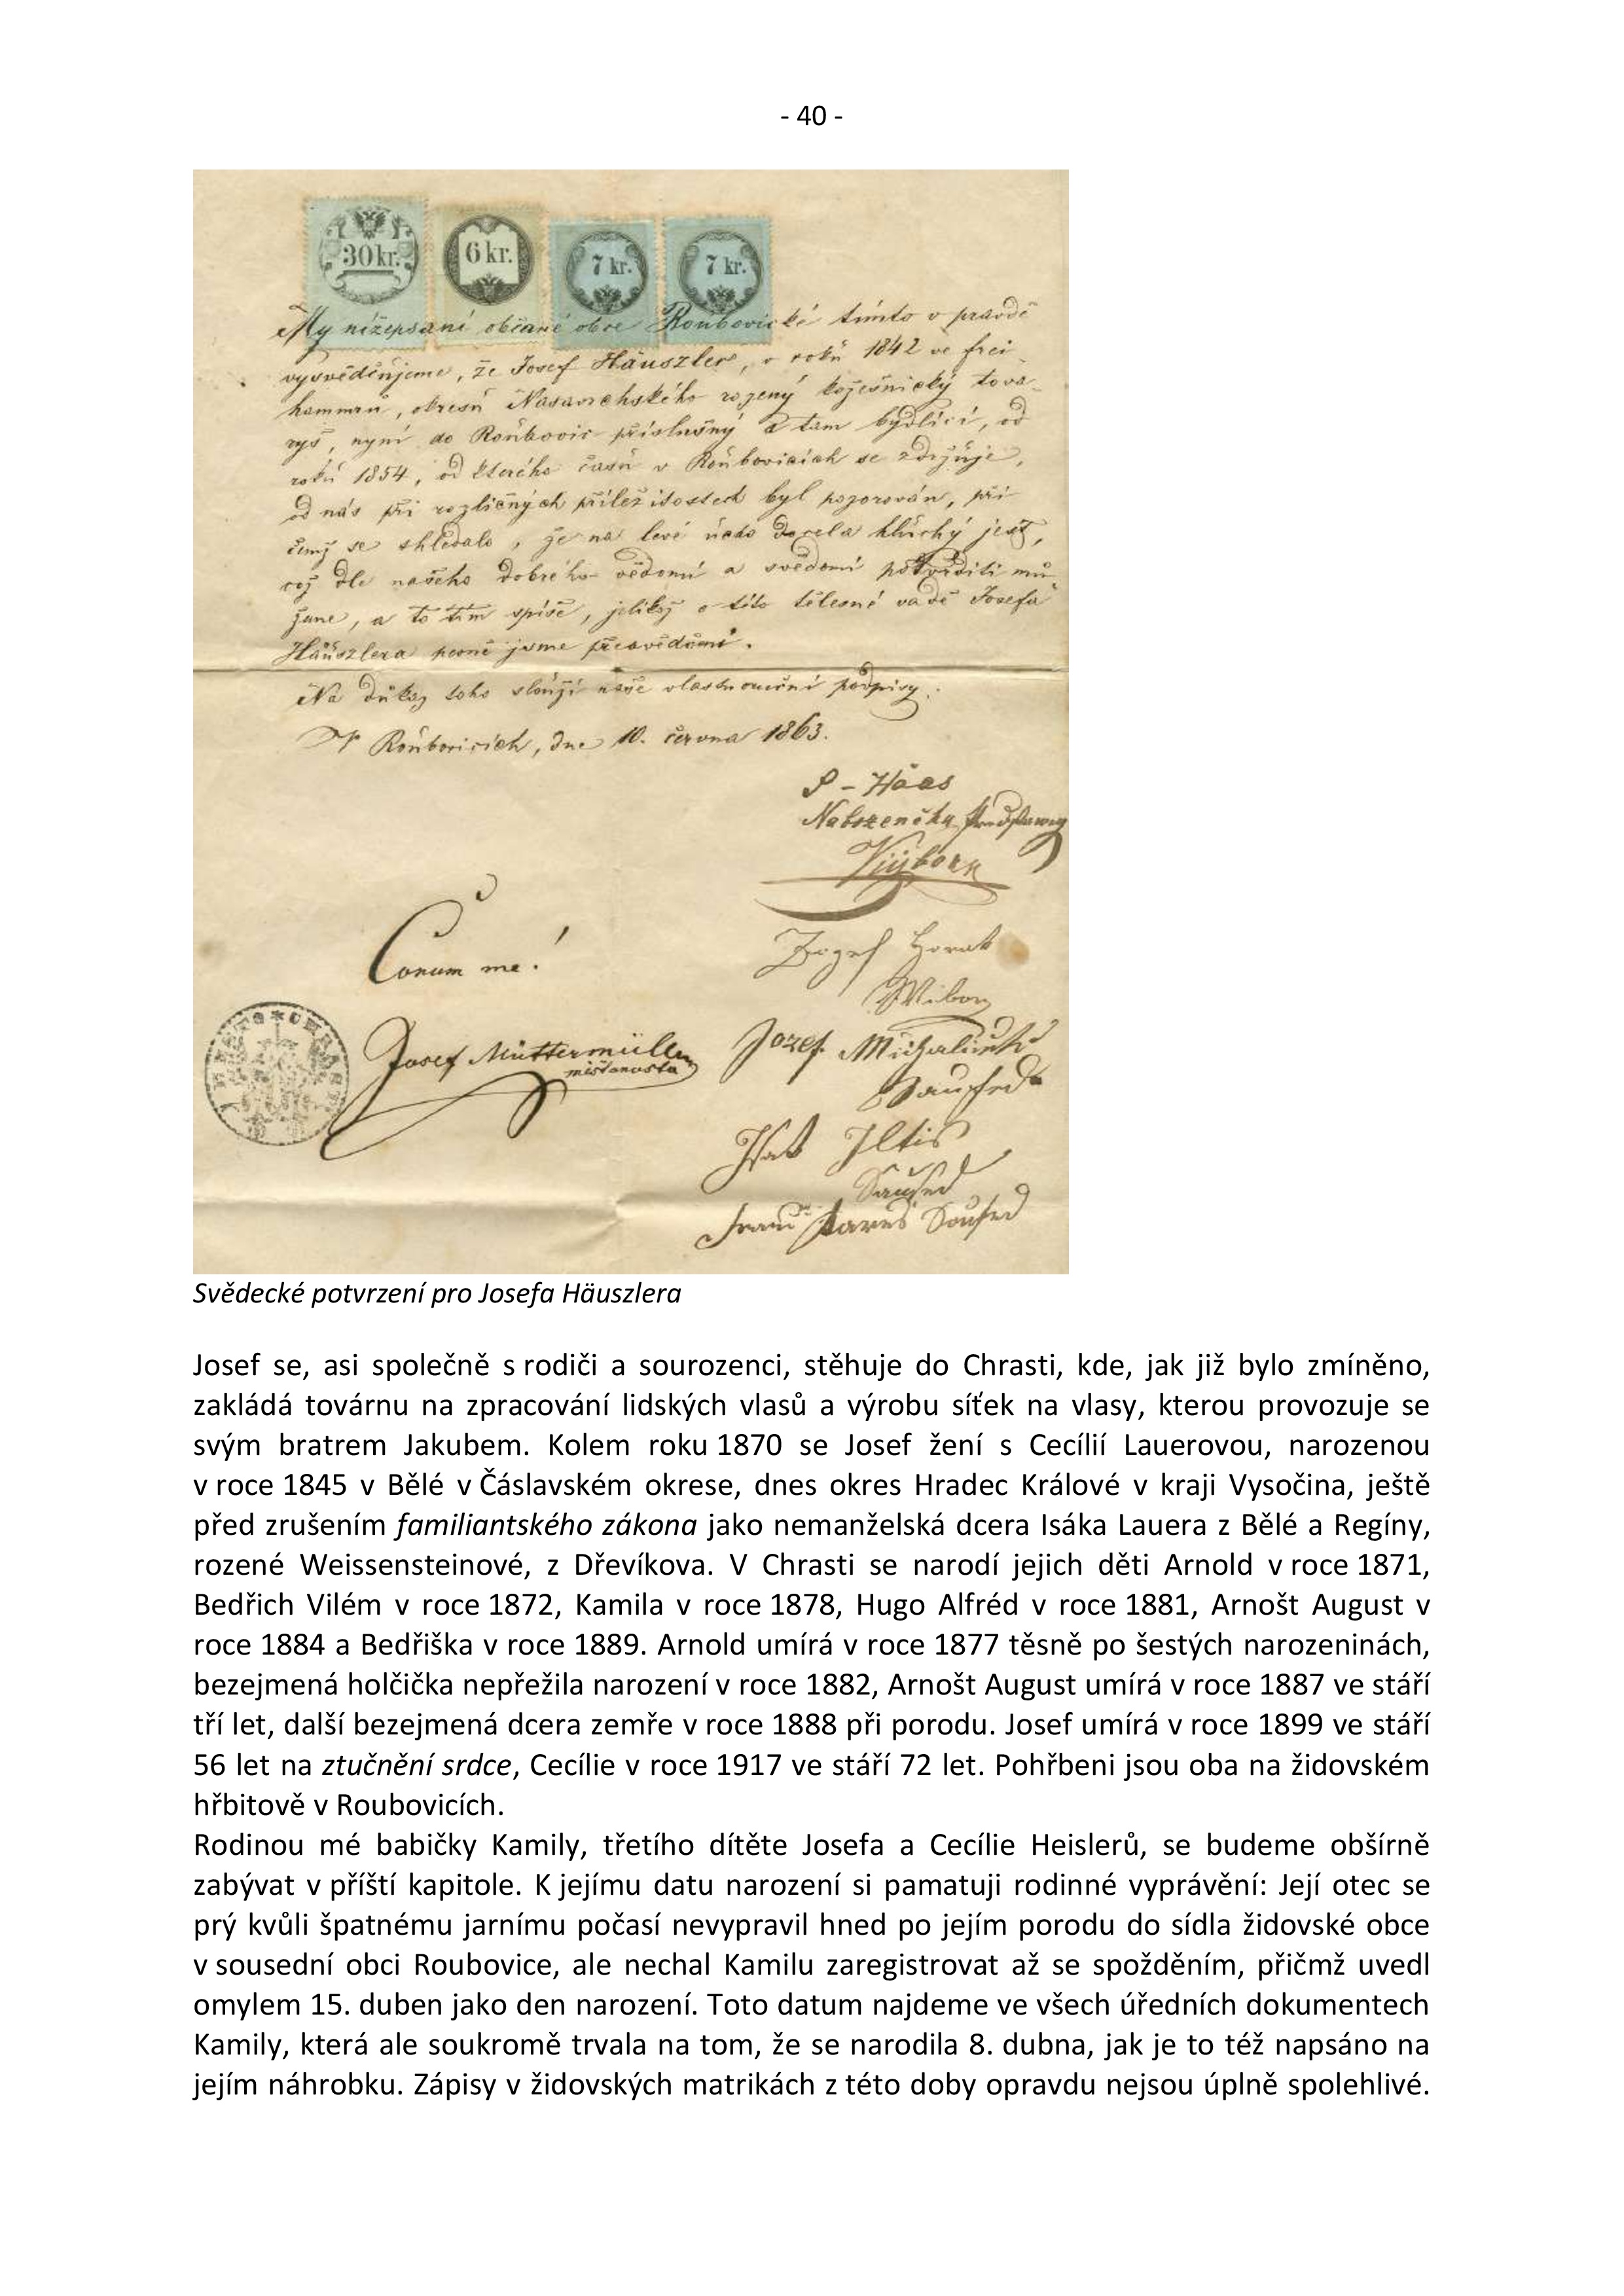 - 40 -
30 kr.
6 kr.
7 kr.
7 kr.
My nížepsaní občané obce Roubovické tímto v pravdě
vysvědčujeme, že Josef Häuszler, v roků 1842 ve frei-
hammrů, okresů Nasavrchského rozený kožešnický tova-
ryš, nyní do Roůbovic příslušný a tam bydlící, od
roků 1854, od kterého časů v Roůbovicích se zdržůje,
od nás při rozličných příležitostech byl pozorován, při
čemž se shledalo, že na levé ůcho docela hlůchý jest,
což dle našeho dobrého vědomí a svědomí potvrditi mů-
žeme, a to tím spíše, jelikož o této tělesné vadě Josefa
Häuszlera pevně jsme přesvědčení.
Na důkaz toho sloůží naše vlastnoruční podpisy.
V Roůbovicích, dne 10. června 1863.
P - Haas
Výbor
Josef Horak
Wibor
Conum me!
Josef Müttermüller
mišťanosta
Jozef
Saused
Iltis
Saused
Soused
Svědecké potvrzení pro Josefa Häuszlera
Josef se, asi společně s rodiči a sourozenci, stěhuje do Chrasti, kde, jak již bylo zmíněno,
zakládá továrnu na zpracování lidských vlasů a výrobu síťek na vlasy, kterou provozuje se
svým bratrem Jakubem. Kolem roku 1870 se Josef žení s Cecílií Lauerovou, narozenou
v roce 1845 v Bělé v Čáslavském okrese, dnes okres Hradec Králové v kraji Vysočina, ještě
před zrušením familiantského zákona jako nemanželská dcera Isáka Lauera z Bělé a Regíny,
rozené Weissensteinové, z Dřevíkova. V Chrasti se narodí jejich děti Arnold v roce 1871,
Bedřich Vilém v roce 1872, Kamila v roce 1878, Hugo Alfréd v roce 1881, Arnošt August v
roce 1884 a Bedřiška v roce 1889. Arnold umírá v roce 1877 těsně po šestých narozeninách,
bezejmená holčička nepřežila narození v roce 1882, Arnošt August umírá v roce 1887 ve stáří
tří let, další bezejmená dcera zemře v roce 1888 při porodu. Josef umírá v roce 1899 ve stáří
56 let na ztučnění srdce, Cecílie v roce 1917 ve stáří 72 let. Pohřbeni jsou oba na židovském
hřbitově v Roubovicích.
Rodinou mé babičky Kamily, třetího dítěte Josefa a Cecílie Heislerů, se budeme obšírně
zabývat v příští kapitole. K jejímu datu narození si pamatuji rodinné vyprávění: Její otec se
prý kvůli špatnému jarnímu počasí nevypravil hned po jejím porodu do sídla židovské obce
v sousední obci Roubovice, ale nechal Kamilu zaregistrovat až se spožděním, přičmž uvedl
omylem 15. duben jako den narození. Toto datum najdeme ve všech úředních dokumentech
Kamily, která ale soukromě trvala na tom, že se narodila 8. dubna, jak je to též napsáno na
jejím náhrobku. Zápisy v židovských matrikách z této doby opravdu nejsou úplně spolehlivé.